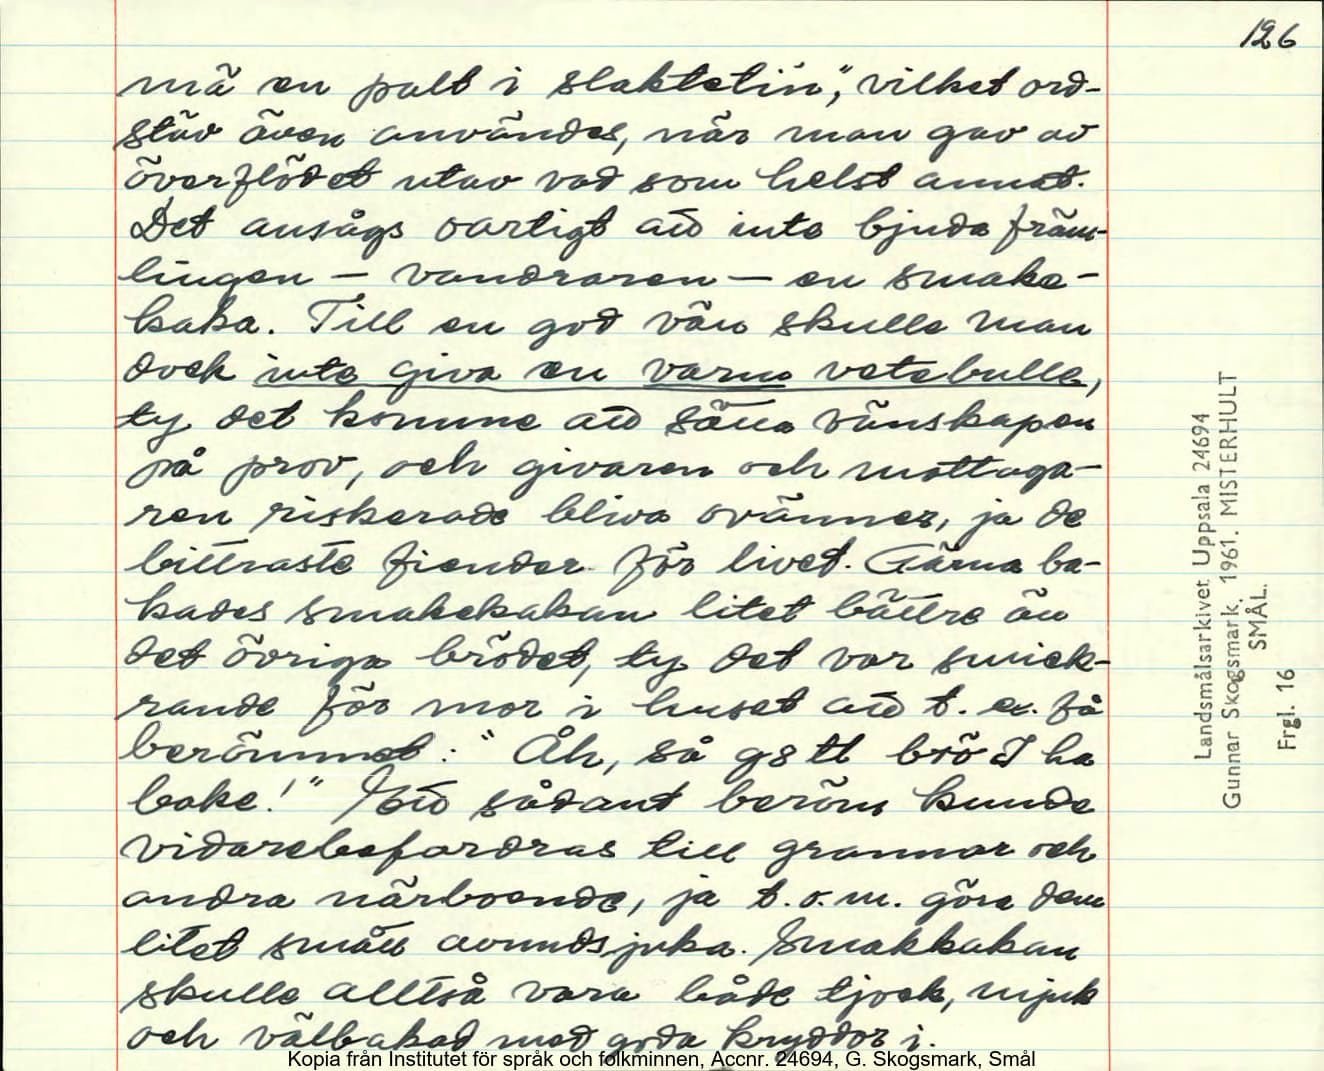 126
mä en palt i slaktetin", vilket ord-
stäv även användes, när man gav av
överflödet utav vad som helst annat.
Det ansågs oartigt att inte bjuda främ-
lingen – vandraren – en smake-
kaka. Till en god vän skulle man
dock inte giva en varm vetebulle,
ty det komme att sätta vänskapen
på prov, och givaren och mottaga-
ren riskerade bliva ovänner, ja de
bittraste fiender för livet. Gärna ba-
kades smakekakan litet bättre än
det övriga brödet, ty det var smick-
rande för mor i huset att t. ex. få
berömmet: "Åh, så gott brö I ha
bake!" Ett sådant beröm kunde
vidarebefordras till grannar och
andra närboende, ja t.o.m. göra dem
litet smått avundsjuka. Smakkakan
skulle alltså vara både tjock, mjuk
och välbakad med goda kryddor i.
Landsmålsarkivet Uppsala 24694
Gunnar Skogsmark. 1961. MISTERHULT
SMÅL.
Frgl. 16
Kopia från Institutet för språk och folkminnen, Accnr. 24694, G. Skogsmark, Smål